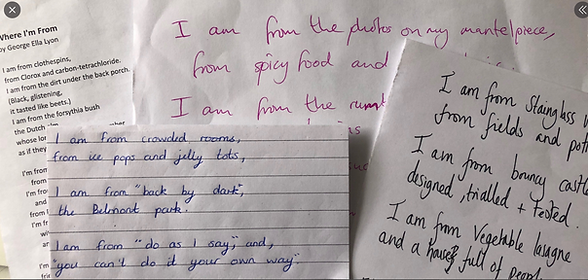 Where I'm From
by George Ella Lyon
I am from clothespins,
from Clorox and carbon-tetrachloride.
I am from the dirt under the back porch.
(Black, glistening,
it tasted like beets.)
I am from the forsythia bush
the Dutch
whose
as if
I'm from
from
I'm
and
from
I'm
I am from the photos on my mantelpiece,
from spicy food and
I am from the
I am from crowded rooms,
from ice pops and jelly tots,
I am from "back by dark",
the Belmont park.
I am from "do as I say", and,
"you can't do it your own way".
I am from Stainglass
from fields and
I am from bouncy
designed, trialled + tested.
I am from Vegetable lasagne
and a house full of people